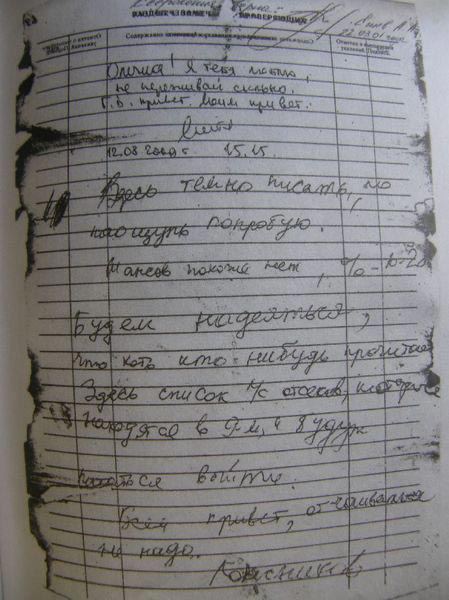 ПРОВЕРЯЮЩИХ
Содержание
Олечка! Я тебя люблю,
не переживай сильно.
Г.В. привет. Моим привет.
12.08.2000 г 15.15.
Здесь темно писать, но
наощупь попробую.
Шансов похоже нет, %-10-20
Будем надеяться,
что хоть кто нибудь прочитает
Здесь список л/с отсеков, которые
находятся в 9-м, и будут
пытаться выйти.
Всем привет, отчаиваться
не надо.
Колесников